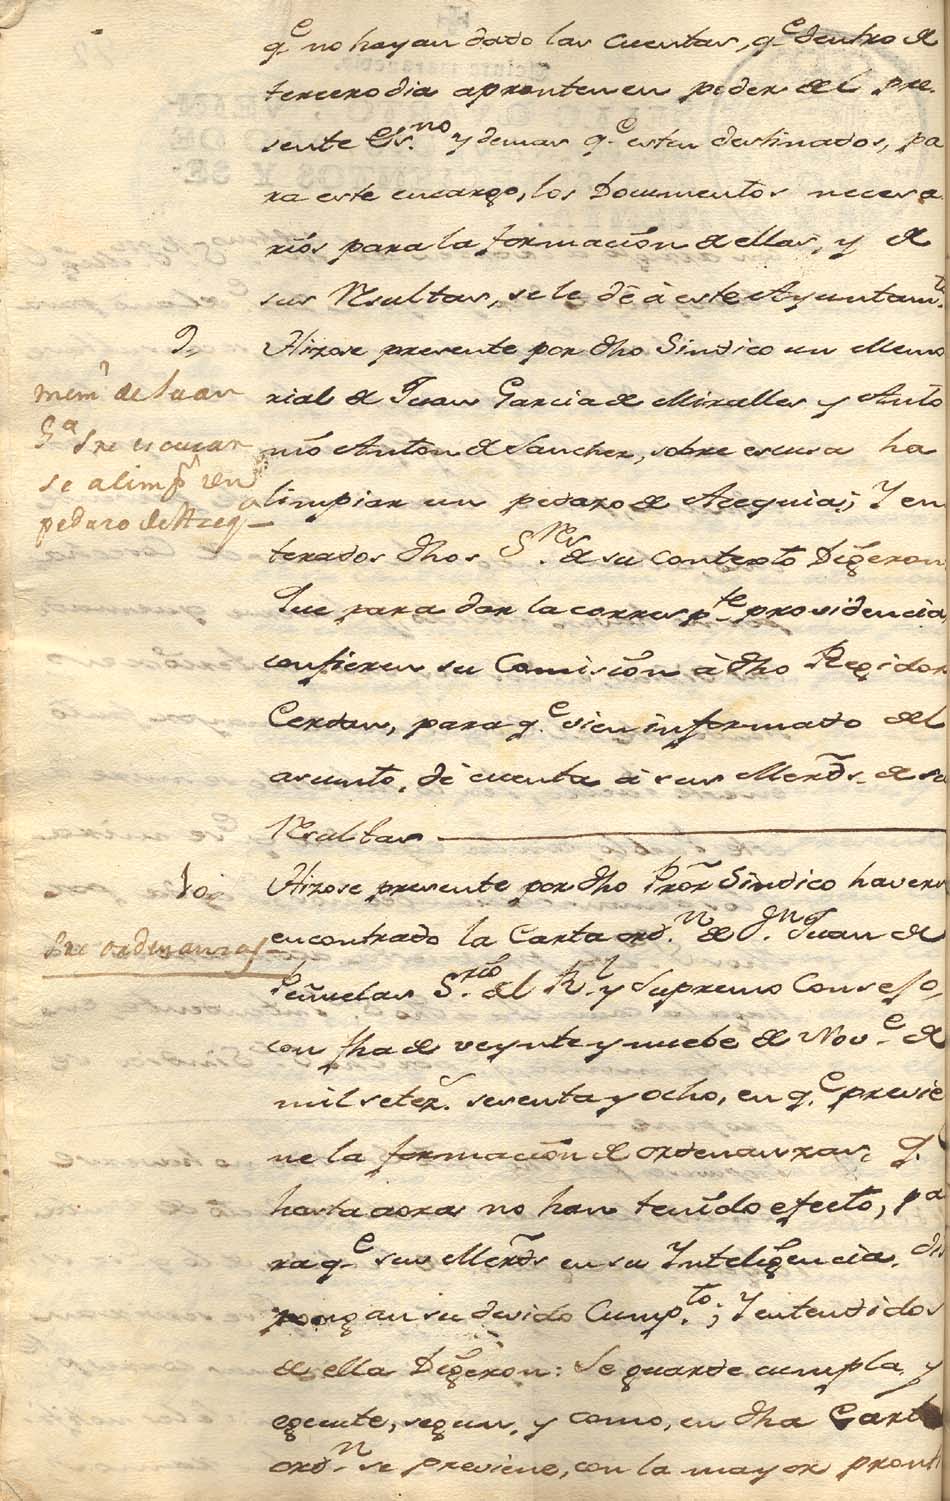 q.e no hayan dado las Cuentas, q.e dentro de
tercero dia apronten en poder del pre-
sente Ess.no y demas q.e esten destinados, pa
ra este encargo, los Documentos necesa
rios para la formación de ellas, y de
sus Resultas, se le dè à este Ayuntam.to
9,
Hizose presente por dho Sindico un Memo
mem.l de Juan
rial de Juan Garcia de Miralles y Anto
G.a sre escusar
nio Anton de Sanchez, sobre escusa ha
se a limp.r un
limpiar un pedazo de Azequia; Y en
pedazo de Azeq.a
terados dhos S.res de su contexto Digeron
Que para dar la corresp.te providencia,
confieren su Comisión à dho Regidor
Cerdan, para q.e vien informado del
asunto, dè cuenta à sus Merds. de su
Resultas
10,
Hizose presente por dho Pror Sindico haver
encontrado la Carta ord.n de D.n Juan de
Sre ordenanzas
Peñuelas S.rio del R.l y Supremo Consejo,
con fha de veynte y nuebe de Nov.e de
mil setez. sesenta y ocho, en q.e previe
ne la formación de ordenanzas, q.
hasta aora no han tenido efecto, pa
ra q.e sus Merds en su Inteligencia, dis
pongan su devido Cump.to; Y entendidos
de ella Digeron: Se guarde cumpla, y
egecute, segun, y como, en dha Carta
ord.n se previene, con la mayor pronti